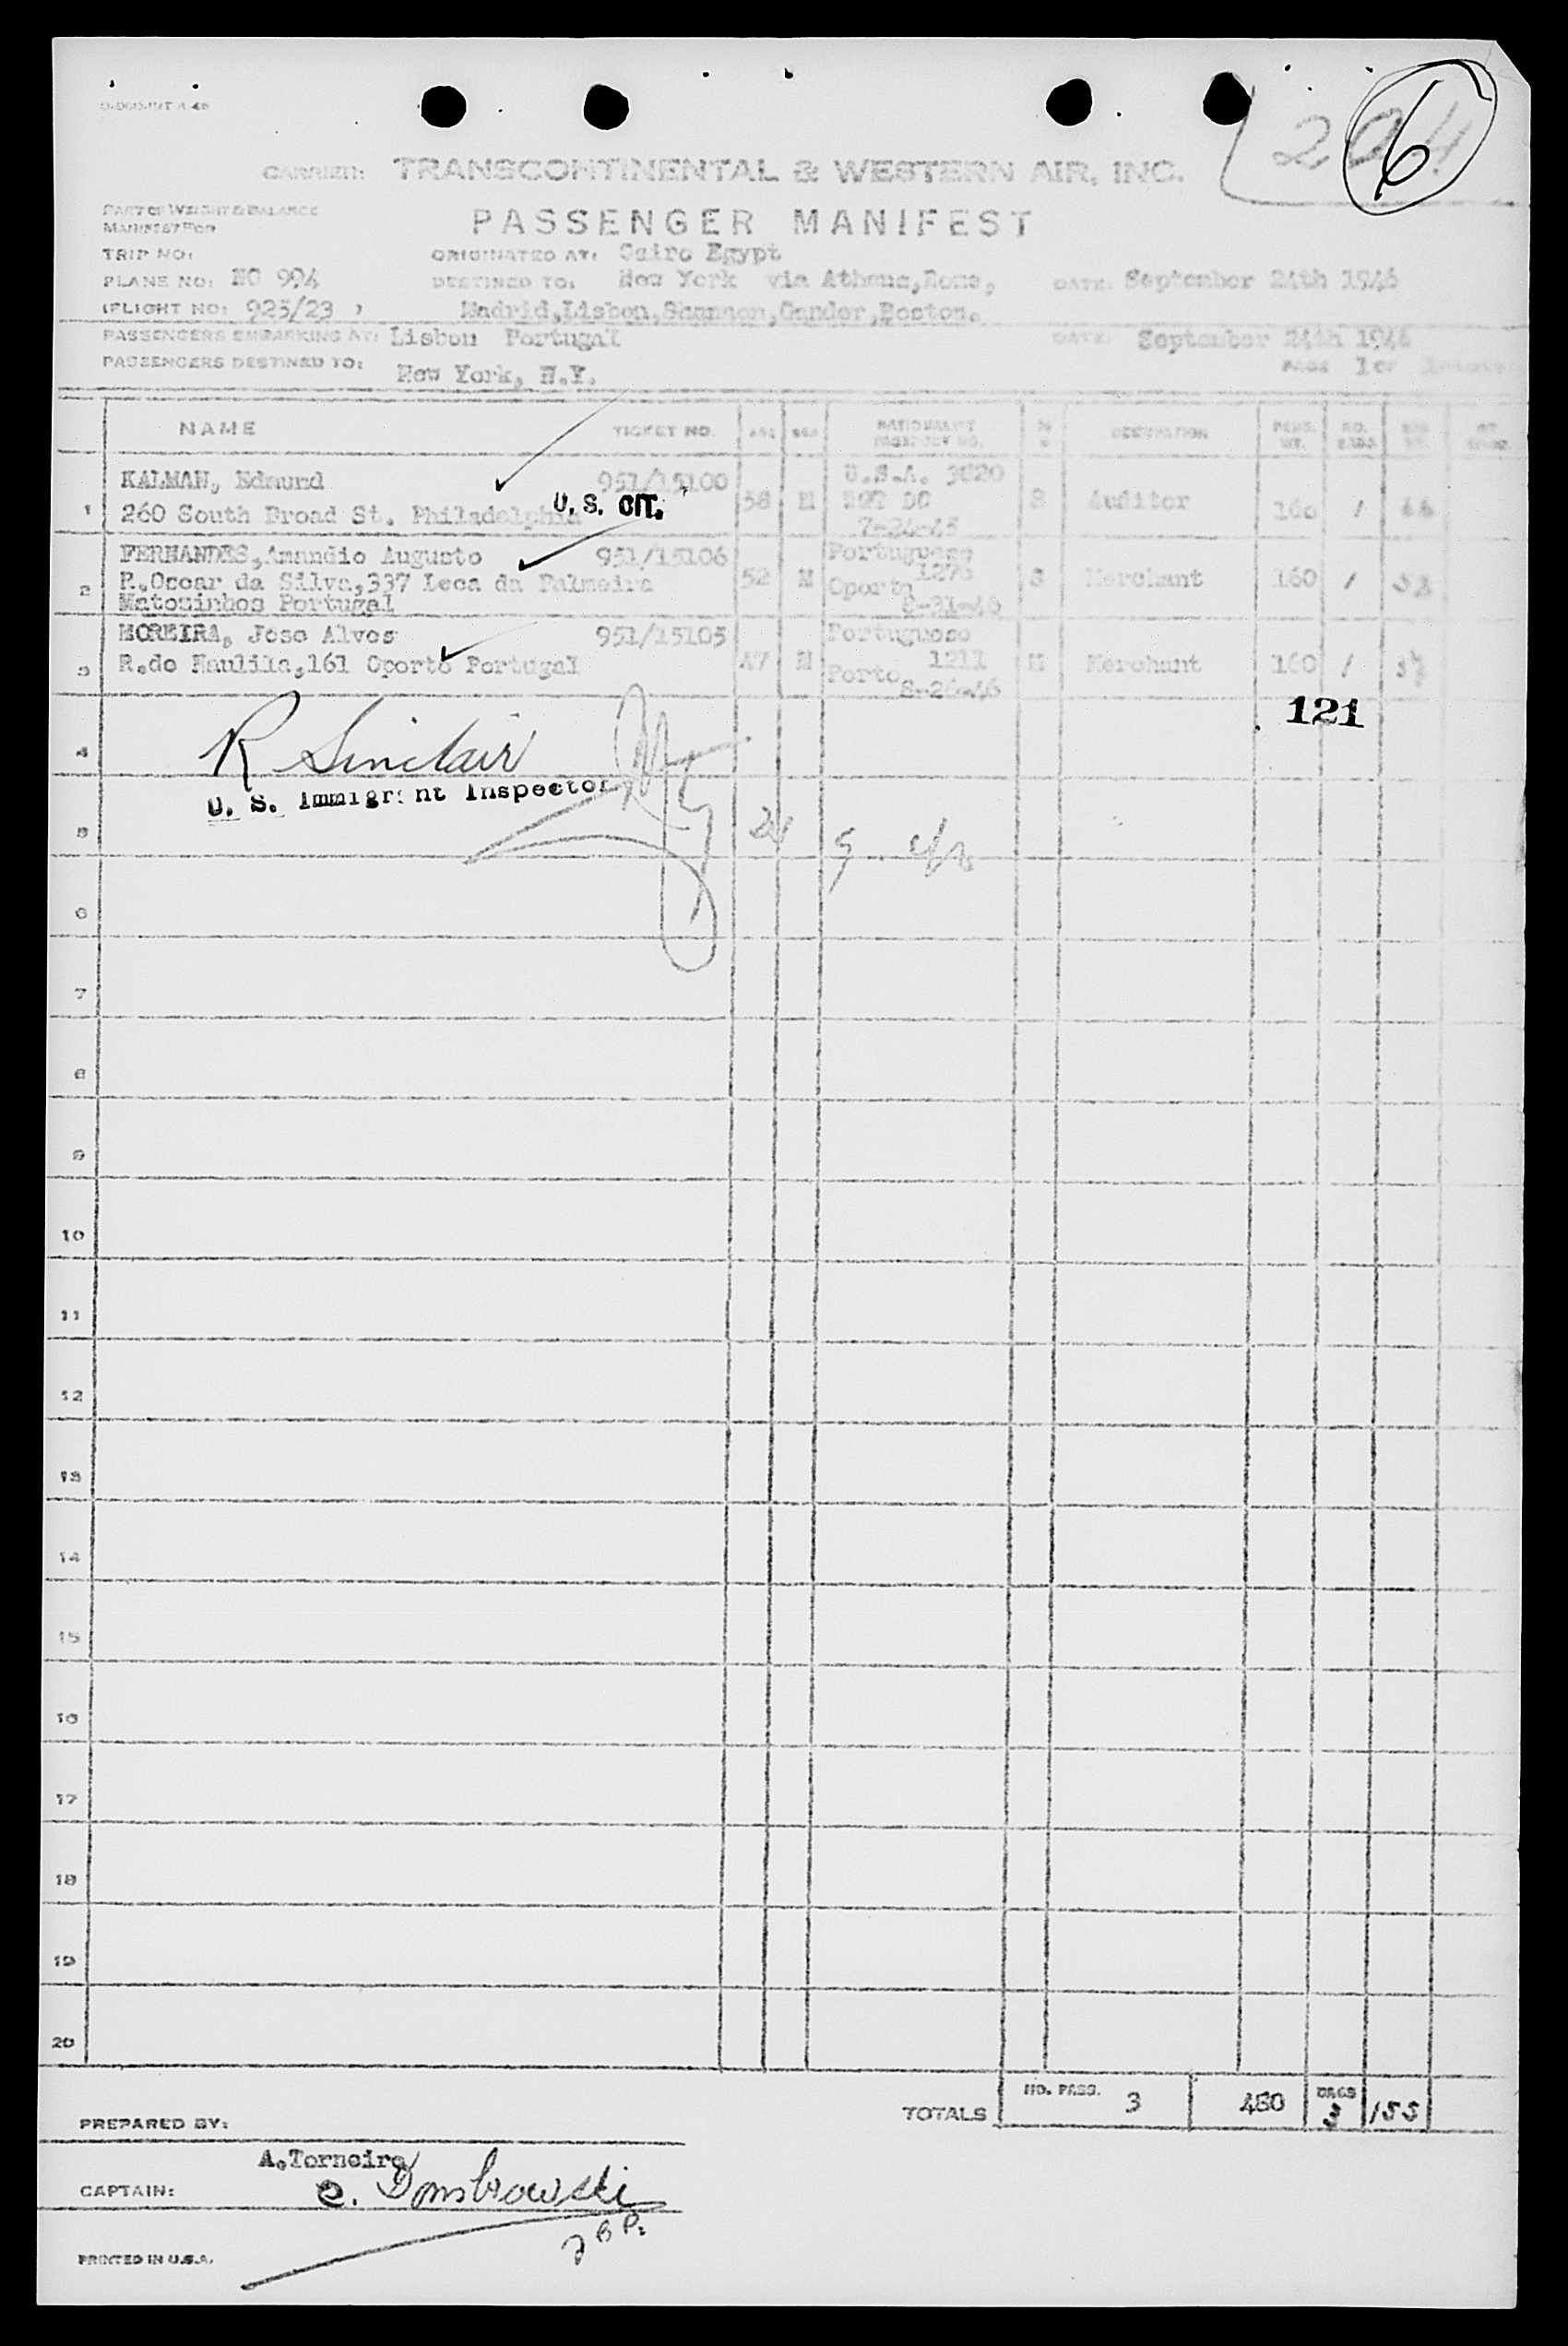 6
CARRIER: TRANSCONTINENTAL & WESTERN AIR, INC.
PART OF WEIGHT & BALANCE
MANIFEST FOR
PASSENGER MANIFEST
TRIP NO: ORIGINATED AT: Cairo Egypt
PLANE NO: NC 994 DESTINED TO: New York via Athens,Rome, DATE: September 24th 1946
(FLIGHT NO: 925/23 ) Madrid,Lisbon,Shannon,Gander,Boston.
PASSENGERS EMBARKING AT: Lisbon Portugal DATE: September 24th 1946
PASSENGERS DESTINED TO: New York, N.Y. PAGE 1 OF 1
NAME TICKET NO. AGE SEX NATIONALITY PASSPORT NO. OCCUPATION PASS. WT. NO. BAGS
KALMAN, Edmund 951/15100 U.S.A. 3820
1 58 M S Auditor 160 1
260 South Broad St. Philadelphia U. S. CIT.
7-24-45
FERNANDES,Amandio Augusto 951/15106 Portuguese
2 R.Oscar da Silva,337 Leca da Palmeira 52 M Oporto 1276 S Merchant 160 1
Matosinhos Portugal 8-31-46
MOREIRA, Jose Alves 951/15105 Portuguese
3 R.do Naulila,161 Oporto Portugal 47 M Porto 1211 M Merchant 160 1
8-26-46
121
4 R Sinclair
U. S. Immigrant Inspector
5 24 9
6
7
8
9
10
11
12
13
14
15
16
17
18
19
20
TOTALS NO. PASS. 3 480 BAGS 3 155
PREPARED BY:
A.Torneiro
CAPTAIN: C. Dombrowski
PRINTED IN U.S.A.